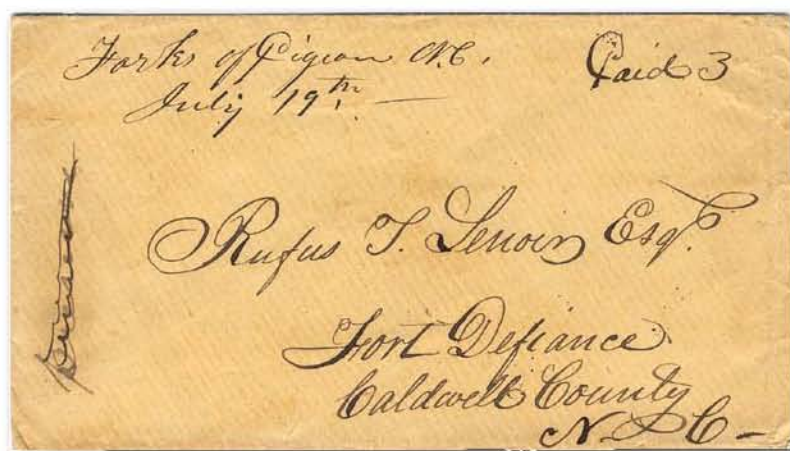 Forks of Pigeon N.C. Paid 3
July 19th. —
Rufus T. Lenoir Esqr.
Fort Defiance
Caldwell County
N. C —